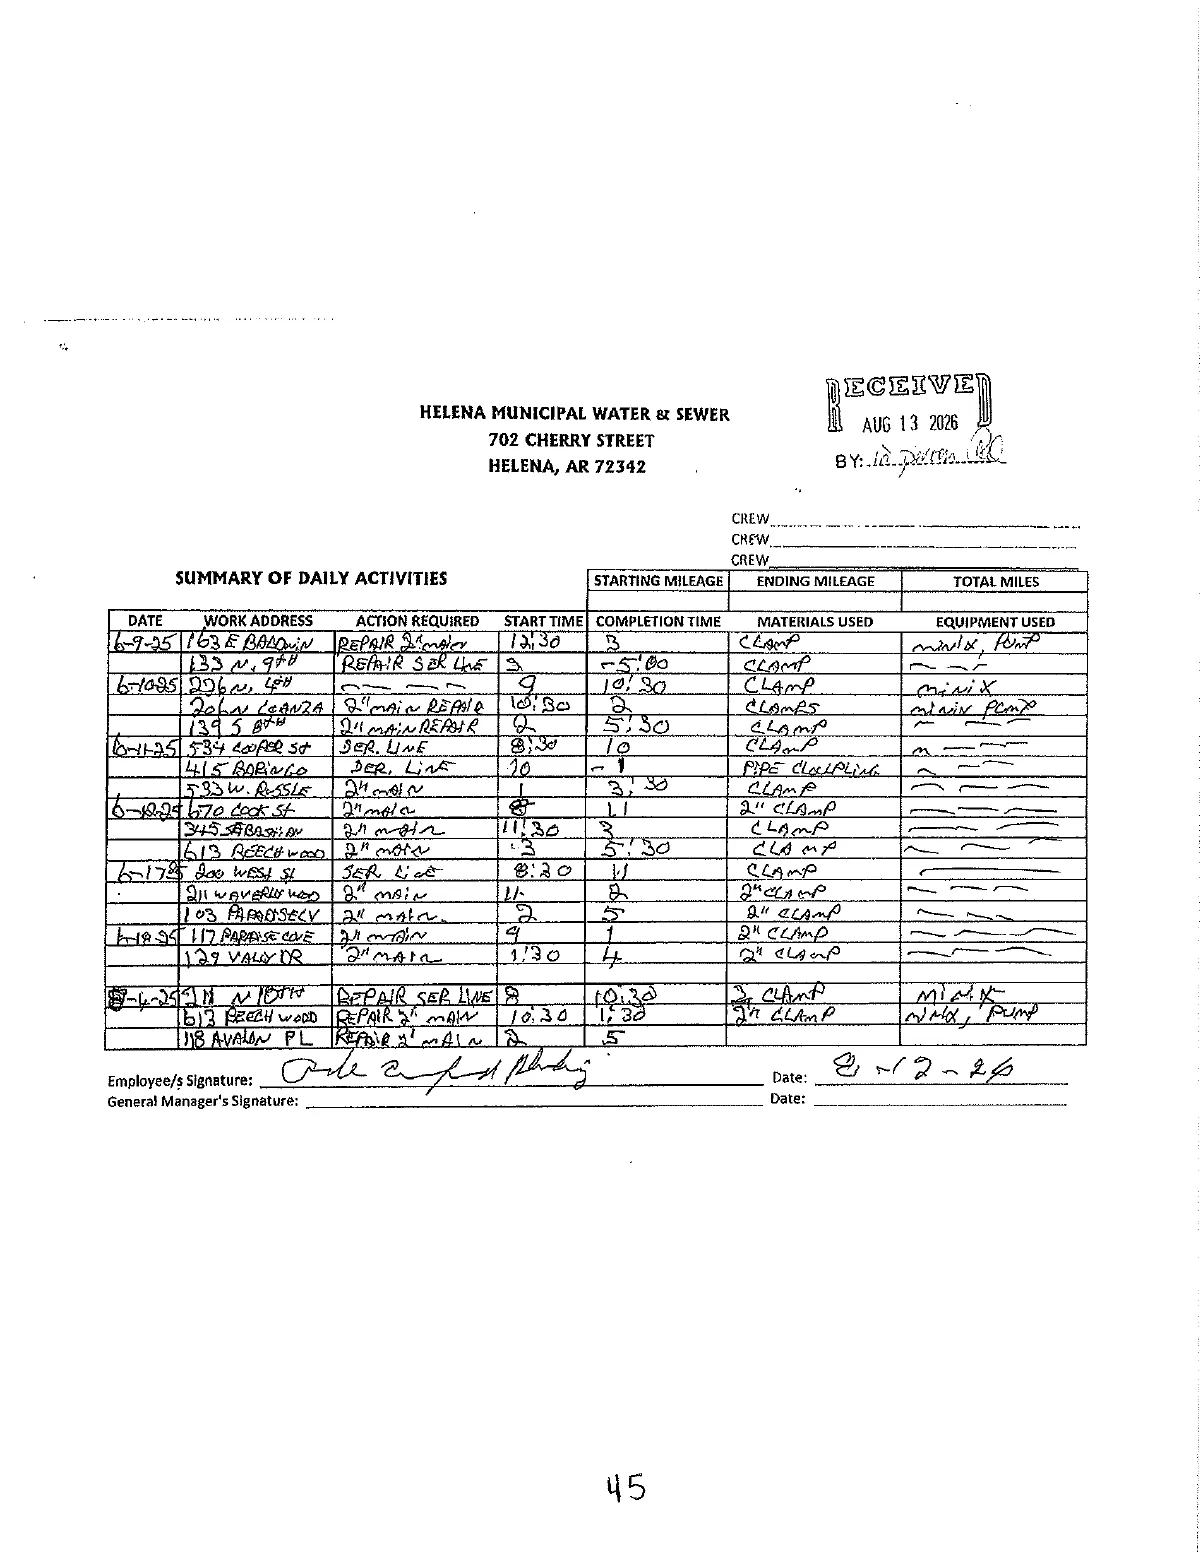 RECEIVED
AUG 13 2026
BY: in person
HELENA MUNICIPAL WATER & SEWER
702 CHERRY STREET
HELENA, AR 72342
CREW
CREW
CREW
SUMMARY OF DAILY ACTIVITIES
STARTING MILEAGE ENDING MILEAGE TOTAL MILES
DATE WORK ADDRESS ACTION REQUIRED START TIME COMPLETION TIME MATERIALS USED EQUIPMENT USED
6-9-25 163 E BALDWIN REPAIR 2" MAIN 12:30 3 CLAMP MINIX, PUMP
133 N. 9TH REPAIR SER LINE 3 -5:00 CLAMP
6-10-25 226 N. 4TH 9 10:30 CLAMP MINIX
206 N 2" MAIN REPAIR 10:30 2 CLAMPS MINIX PUMP
139 S 8TH 2" MAIN REPAIR 2 5:30 CLAMP
6-11-25 534 COOPER ST SER. LINE 8:30 10 CLAMP
415 SER. LINE 10 - 1 PIPE
533 W. 2" MAIN 1 3:30 CLAMP
670 COOK ST 2" MAIN 8 11 2" CLAMP
345 SEBASTIAN 2" MAIN 11:30 3 CLAMP
613 BEECHWOOD 2" MAIN 3 5:30 CLAMP
6-17-25 200 WEST ST SER LINE 8:30 11 CLAMP
211 WAVERLY WOOD 2" MAIN 11 2 2" CLAMP
103 2" MAIN 2 5 2" CLAMP
6-18-25 117 PARADISE COVE 2" MAIN 9 1 2" CLAMP
129 VALY DR 2" MAIN 1:30 4 2" CLAMP
-4-25 N 10TH REPAIR SER LINE 8 10:30 CLAMP MINIX
613 BEECHWOOD REPAIR 2" MAIN 10:30 1:30 2" CLAMP PUMP
118 AVALON PL REPAIR 2" MAIN 2 5
Employee/s Signature: Date: 8-12-26
General Manager's Signature: Date:
45